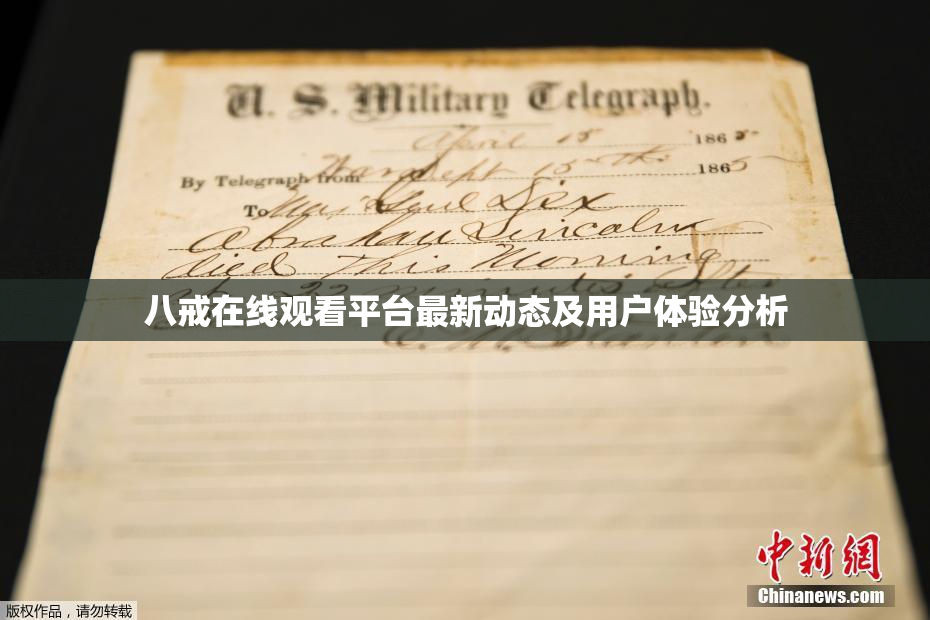 U. S. Military Telegraph.
April 15 1865
By Telegraph from War Dept 15th 1865
To Maj Genl Dix
Abraham Lincoln
died This Morning
at 22 minutes after
八戒在线观看平台最新动态及用户体验分析
E. M. Stanton
中新网
Chinanews.com
版权作品，请勿转载